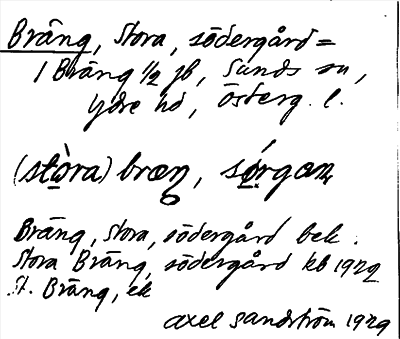 Bräng, Stora, södergård =
1 Bräng 1/2 jb, Sunds sn,
Ydre hd, Österg. l.
(stòra) bræŋ, sǿrgaɳ
Bräng, Stora, södergård bek.
Stora Bräng, södergård kb 1922
St. Bräng, ek
Axel Sandström 1929